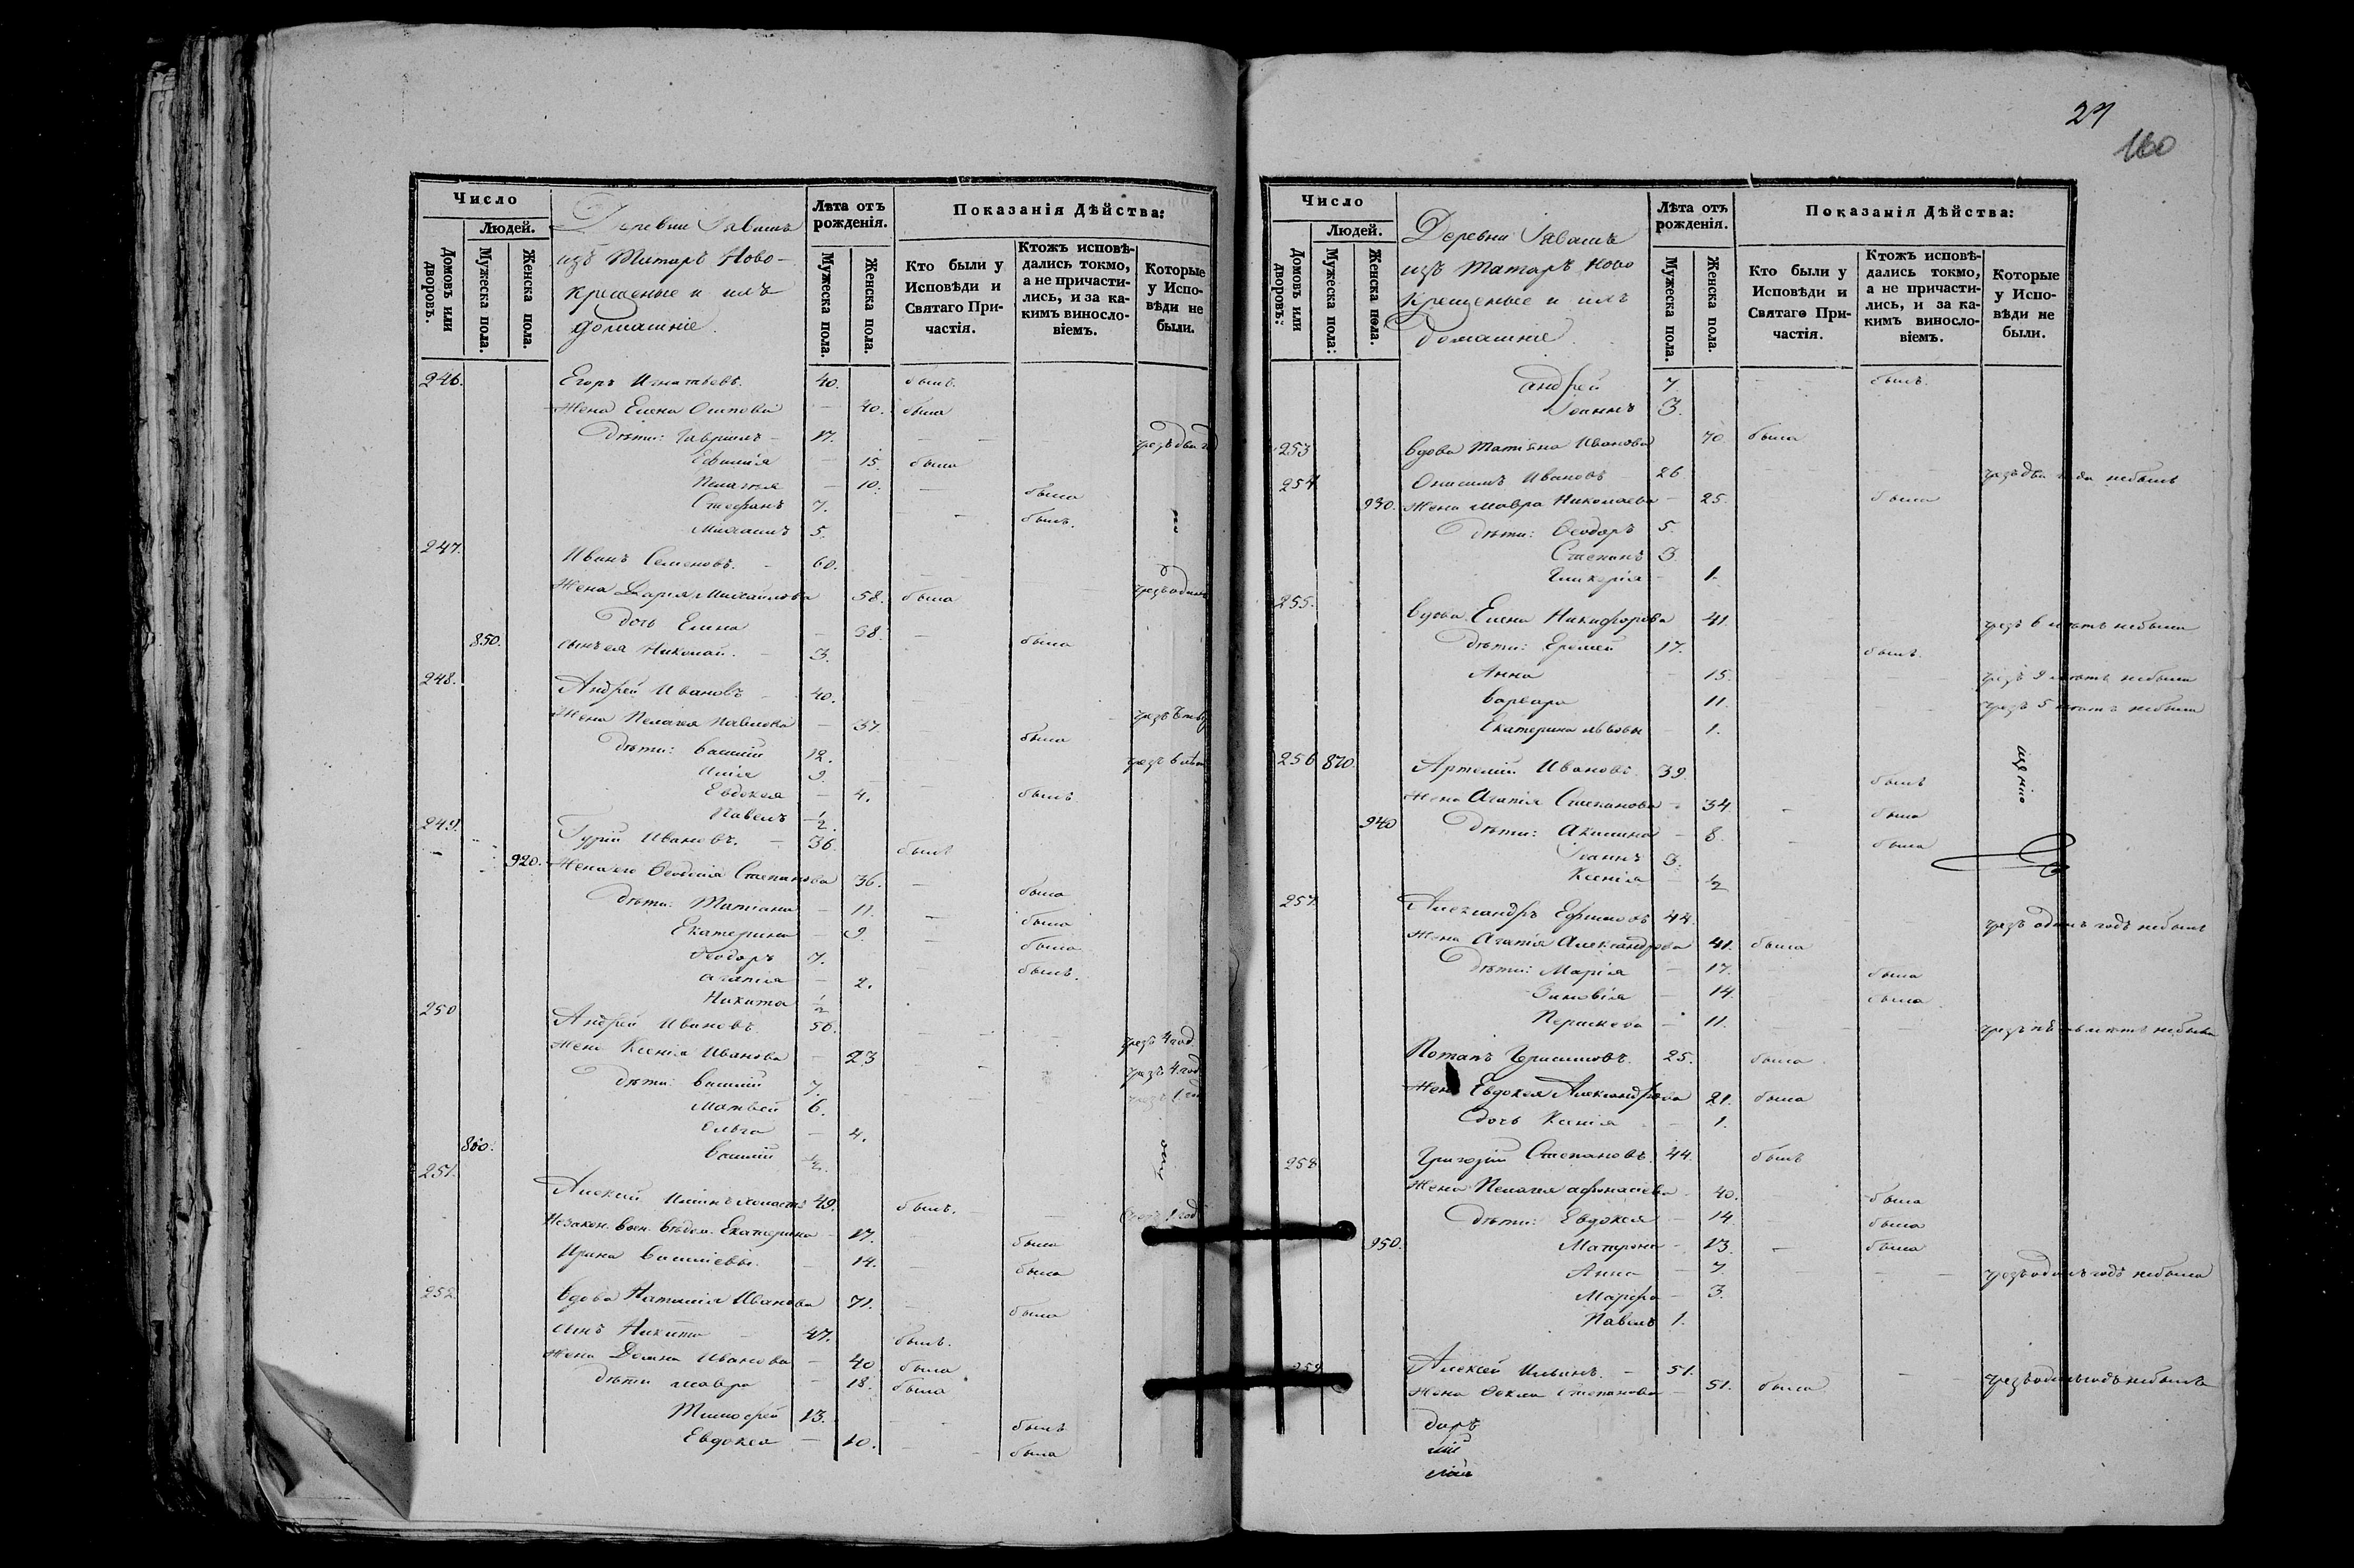 Число
Людей.
Домовъ или дворовъ.
Мужеска пола.
Женска пола.
Деревни
изъ Татаръ Ново-
крещеные и ихъ
домашніе.
Лѣта отъ рожденія.
Мужеска пола.
Женска пола.
Показанія Дѣйства:
Кто были у Исповѣди и Святаго Причастія.
Ктожъ исповѣдались токмо, а не причастились, и за какимъ винословіемъ.
Которые у Исповѣди не были.
246. Егоръ Игнатьевъ. 40. былъ.
Жена Елена Осипова – 40. была
Дѣти: Гавріилъ – 17. чрезъ два
Ефимія – 15. была
Пелагея – 10. – была
Стефанъ 7. былъ.
Михаилъ 5.
247. Иванъ Семеновъ. – 60. чрезъ одинъ
Жена Дарья Михайлова 58. была
дочь Елена – 38. – была
850. сынъ ея Николай. – 3.
248. Андрей Ивановъ – 40. чрезъ
Жена Пелагея Павлова – 37. была
Дѣти: Василій 12. чрезъ 6 лѣт
Илія 9. былъ.
Евдокея – 4.
Павелъ ½.
249. Гурій Ивановъ. – 36. былъ
920. Жена его Феодосія Степанова 36. – была
Дѣти: Татіана – 11. – была
Екатерина – 9. – была
Феодоръ 7. былъ.
Агапія – 2.
Никита ½
250 Андрей Ивановъ. 56. чрезъ 4 год.
Жена Ксенія Иванова – 23 чрезъ 4. год
Дѣти: Василій 7. чрезъ 1 го
Матвей 6.
Ольга – 4.
860. Василій ½.
251. Алексей Ильинъ холостъ 49. былъ. – 1 год
Незакон. Екатерина – 17. – была
Ирина Василіевы – 14. – была
252. Вдова Наталія Иванова 71. – была
сынъ Никита – 47. былъ.
Жена Домна Иванова – 40 была
Дѣти Мавра – 18. была
Тимофей 13. былъ
Евдокея – 10. – была
27
160
Число
Людей.
Домовъ или дворовъ:
Мужеска пола:
Женска пола.
Деревни
изъ Татаръ Ново
крещеные и ихъ
домашніе.
Лѣта отъ рожденія.
Мужеска пола.
Женска пола.
Показанія Дѣйства:
Кто были у Исповѣди и Святаго Причастія.
Ктожъ исповѣдались токмо, а не причастились, и за какимъ винословіемъ.
Которые у Исповѣди не были.
Андрей 7. былъ.
Іоаннъ 3.
253 Вдова Татіяна Иванова 70 была
254 Онисимъ Ивановъ 26 чрезъ два года небылъ
930. Жена Мавра Николаева – 25. была
Дѣти: Феодоръ 5.
Степанъ 3.
Гликерія – 1.
255. Вдова Елена Никифорова 41. чрезъ 6 лѣтъ небыла
Дѣти: Еремей 17. былъ.
Анна – 15. чрезъ 9 лѣтъ небыла
Варвара 11. чрезъ 5 лѣтъ небыла
Екатерина Львовы – 1.
256 870. Артемій Ивановъ. 39. былъ
Жена Агапія Степанова – 34. – была
940 Дѣти: Акилина – 8. – была
Іоаннъ 3.
Ксенія – ½
257. Александръ Ефимовъ 44. чрезъ одинъ годъ небылъ
Жена Агапія Александрова 41. была
Дѣти: Марія – 17. была
Зиновія – 14. была
Параскева – 11.
Потапъ Герасимовъ. 25. была
Жена Евдокея Александрова 21. была
дочь Ксенія – 1.
258 Григорій Степановъ. 44. былъ
Жена Пелагея Афонасіева – 40. была
Дѣти: Евдокея – 14. была
950. Матрона – 13. – была
Анна – 7 – чрезъ одинъ годъ небыла
Марфа – 3.
Павелъ 1.
259 Алексей Ильинъ. – 51. чрезъ одинъ годъ небылъ
Жена Фекла Степанова – 51. была